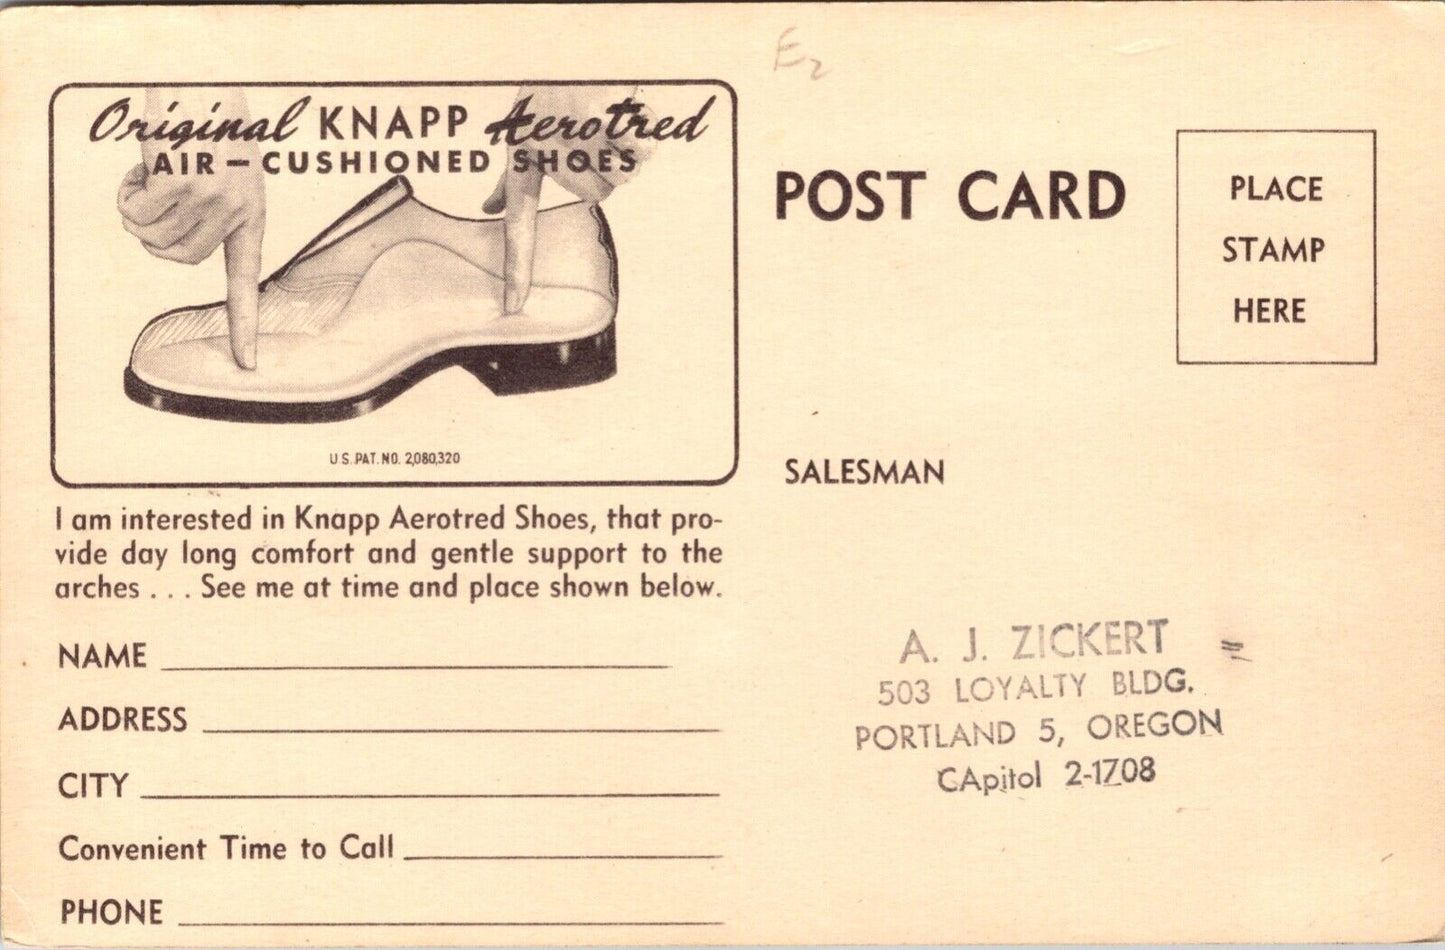 E2
Original KNAPP Aerotred
AIR – CUSHIONED SHOES
U.S. PAT. NO. 2,080,320
I am interested in Knapp Aerotred Shoes, that pro-
vide day long comfort and gentle support to the
arches . . . See me at time and place shown below.
NAME
ADDRESS
CITY
Convenient Time to Call
PHONE
POST CARD
PLACE
STAMP
HERE
SALESMAN
A. J. ZICKERT
503 LOYALTY BLDG.
PORTLAND 5, OREGON
CApitol 2-1708